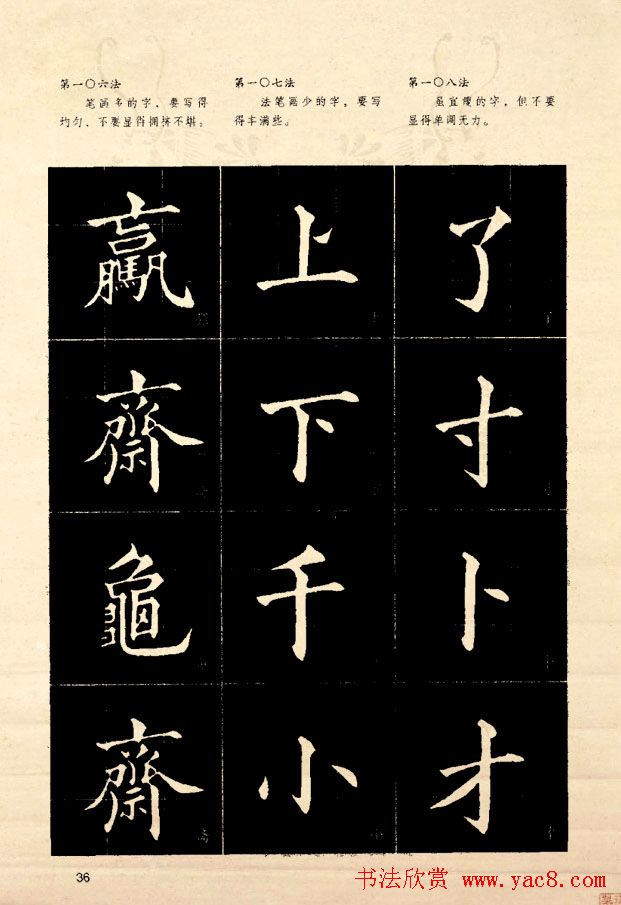 第一〇六法
笔画多的字，要写得
均匀，不要显得拥挤不堪。
第一〇七法
法笔画少的字，要写
得丰满些。
第一〇八法
虽宜瘦的字，但不要
显得单调无力。
贏 上 了
齋 下 寸
龜 千 卜
齋 小 才
36
书法欣赏 www.yac8.com